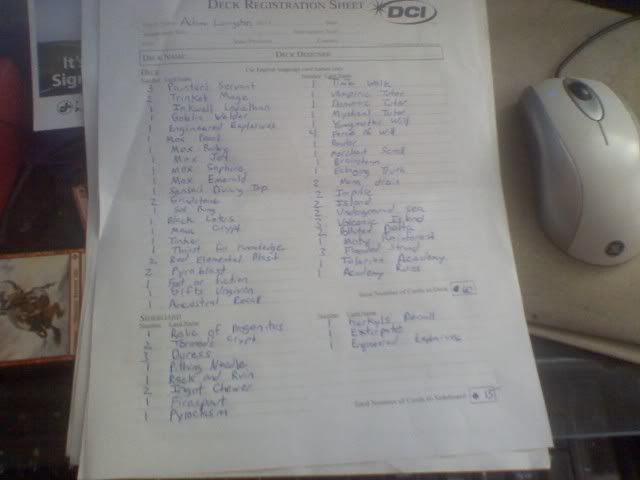 It's
Sign
DECK REGISTRATION SHEET
DCI
Adam
DECK NAME
DECK DESIGNER
DECK
Use English language card names only.
Number Card Name
3 Painter's Servant
2 Trinket Mage
1 Inkwell Leviathan
1 Goblin Welder
1 Engineered Explosives
1 Mox Pearl
1 Mox Ruby
1 Mox Jet
1 Mox Saphire
1 Mox Emerald
1 Sensei's Divining Top
2 Grindstone
1 Sol Ring
1 Black Lotus
1 Mana Crypt
1 Tinker
1 Thirst for
2 Red Elemental Blast
2 Pyroblast
1 Fact or Fiction
1 Gifts Ungiven
1 Ancestral Recall
Number Card Name
1 Time Walk
1 Vampiric Tutor
1 Demonic Tutor
1 Mystical Tutor
1 Yawgmoth's Will
4 Force of Will
1 Ponder
1 Merchant Scroll
1 Brainstorm
1 Echoing Truth
2 Mana Drain
2 Island
2 Underground Sea
Volcanic Island
Polluted Delta
1 Misty Rainforest
3 Flooded Strand
1 Tolarian Academy
1 Academy Ruins
Total Number of Cards in Deck 60
SIDEBOARD
Number Card Name
1 Relic of Progenitus
2 Tormod's Crypt
3 Duress
1 Pithing Needle
1 Rack and Ruin
2 Ingot Chewer
1 Firespout
1 Pyroclasm
Number Card Name
1 Hurkyls Recall
1 Extirpate
1 Engineered Explosives
Total Number of Cards in Sideboard 15
GE